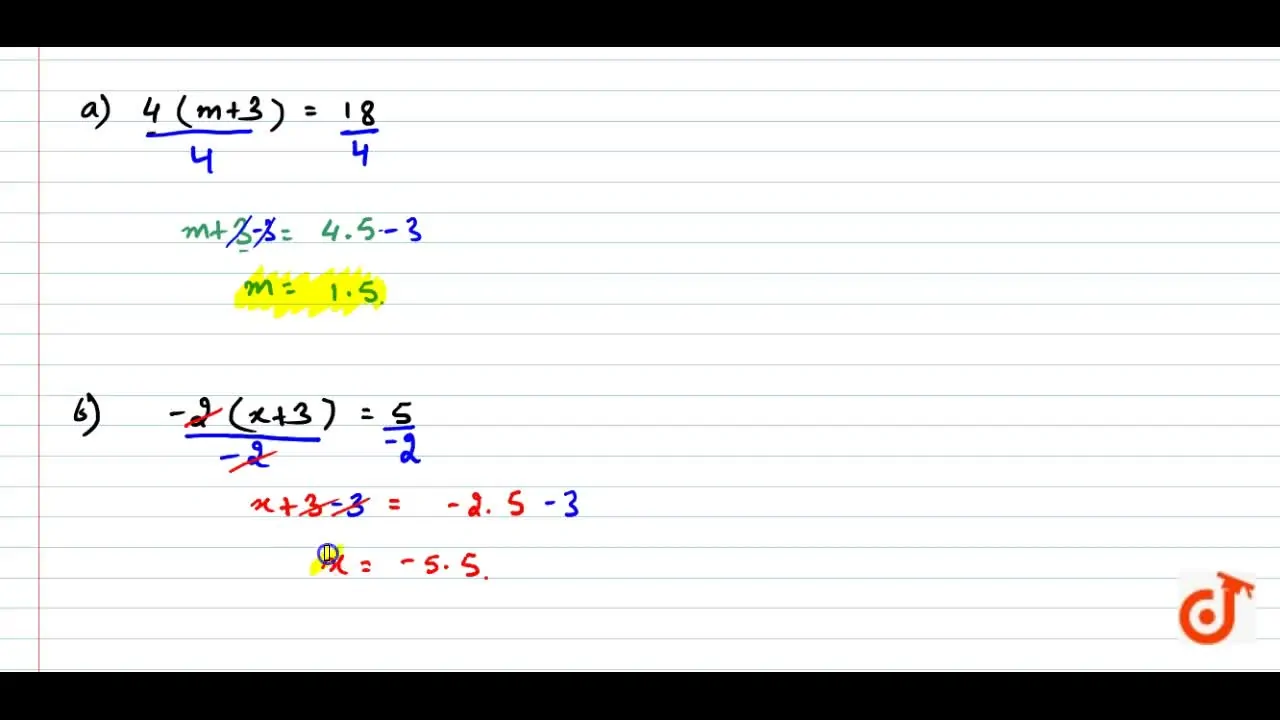 a) 4 (m+3) = 18
4 4
m+3-3 = 4.5-3
m = 1.5.
b) -2 (x+3) = 5
-2 -2
x+3-3 = -2.5 -3
x = -5.5.